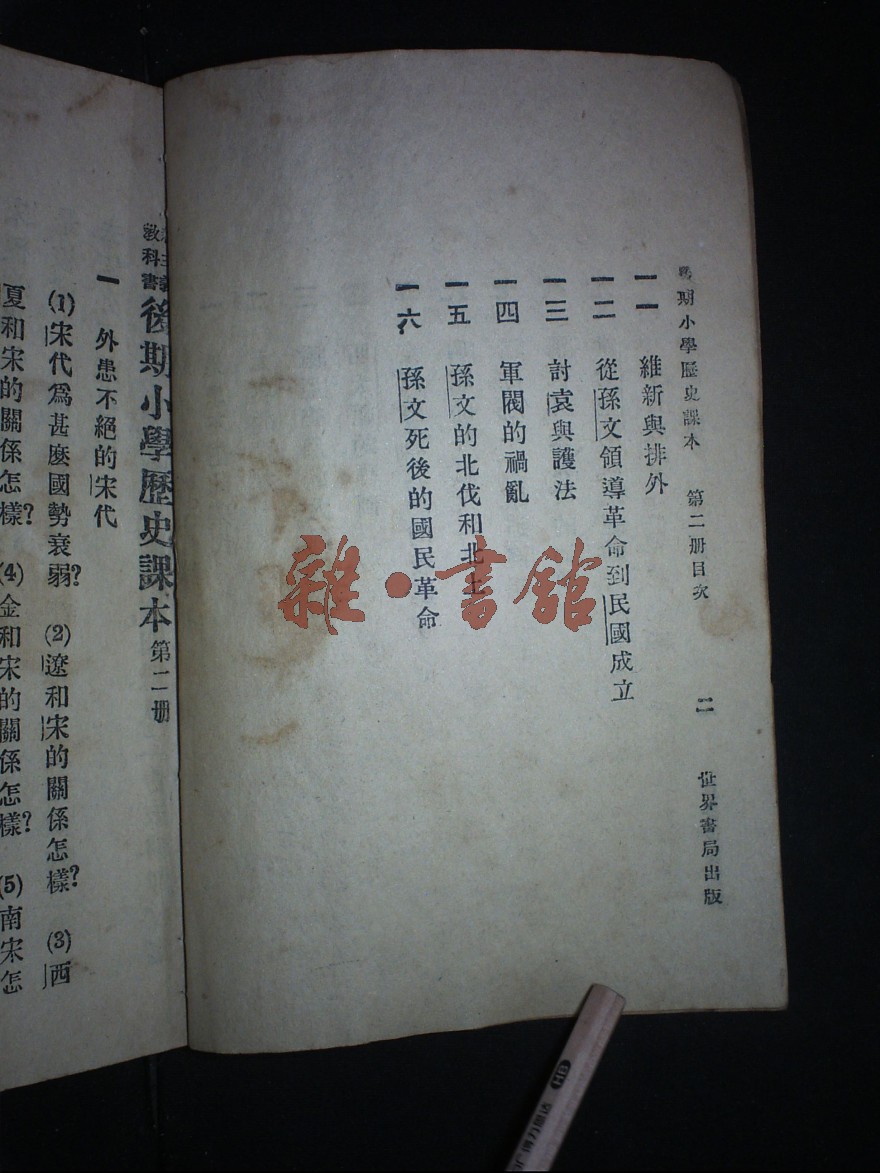 後期小學歷史課本 第二册目次 二 世界書局出版
一一 維新與排外
一二 從孫文領導革命到民國成立
一三 討袁與護法
一四 軍閥的禍亂
一五 孫文的北伐和北上
一六 孫文死後的國民革命
雜·書館
教科書 後期小學歷史課本 第二册
一 外患不絕的宋代
(1)宋代爲甚麼國勢衰弱? (2)遼和宋的關係怎樣? (3)西
夏和宋的關係怎樣? (4)金和宋的關係怎樣? (5)南宋怎
HB